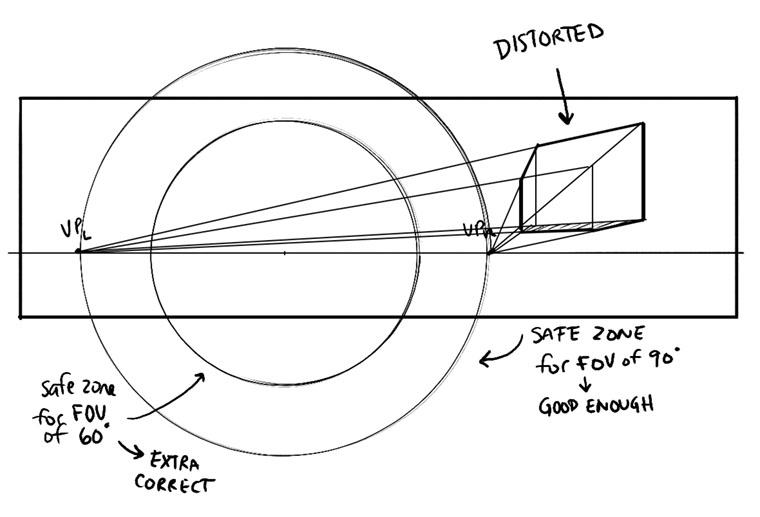 DISTORTED
VPL
VPR
SAFE ZONE
for FOV of 90°
GOOD ENOUGH
Safe zone
for FOV
of 60°
EXTRA
CORRECT